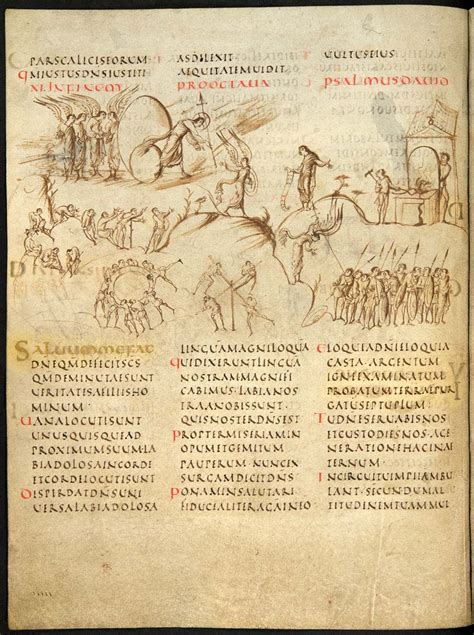 PARSCALICISEORUM
QMIUSTUSDNSIUSTITI
ASDILEXIT
AEQUITATEMUIDIT
UULTUSEIUS
XI INFINEM PROOCTAUA PSALMUSDAUID
SALUUMMEFAC
DNEQMDEFICITSCS
QMDEMINUTAESUNT
UERITATISAFILIISHO
MINUM
UANALOCUTISUNT
UNUSQUISQUEAD
PROXIMUMSUUMLA
BIADOLOSAINCORDE
ETCORDELOCUTISUNT
DISPERDATDNSUNI
UERSALABIADOLOSA
LINGUAMAGNILOQUA
QUIDIXERUNTLINGUA
NOSTRAMMAGNIFI
CABIMUS LABIANOS
TRAANOBISSUNT
QUISNOSTERDNSEST
PROPTERMISERIAMIN
OPUMETGEMITUM
PAUPERUM NUNC
GAMDICITDNS
PONAMINSALUTARI
FIDUCIALITERAGAINEO
ELOQUIADNIELOQUIA
CASTA ARGENTUM
IGNIEXAMINATUM
PROBATUMTERRAEPUR
GATUSEPTUPLUM
TUDNESERUABISNOS
ETCUSTODIESNOS AGE
NERATIONEHACINAE
TERNUM
INCIRCUITUIMPIIAMBU
LANT SECUNDUMAL
TITUDINEMTUAMMUL